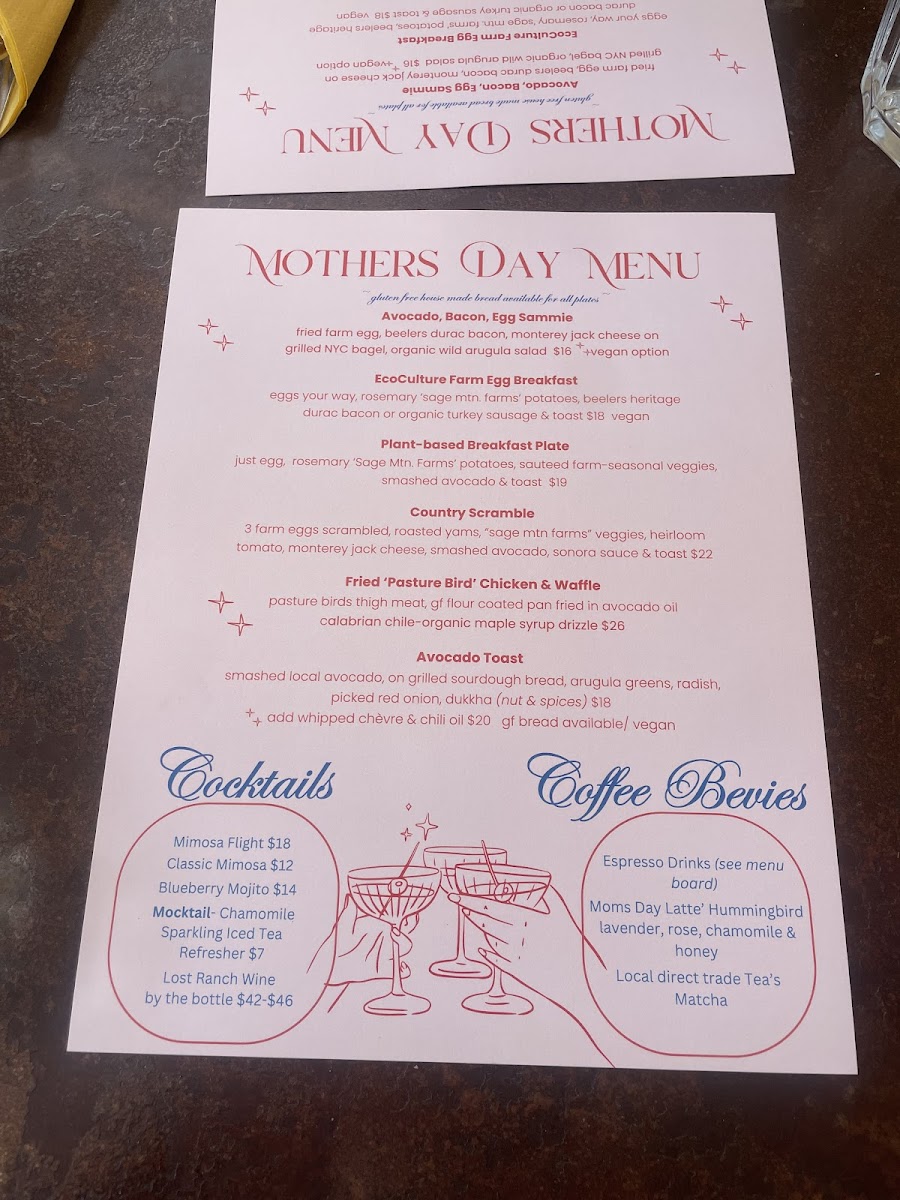 durac bacon or organic turkey sausage & toast $18 vegan
eggs your way, rosemary 'sage mtn. farms' potatoes, beelers heritage
EcoCulture Farm Egg Breakfast
grilled NYC bagel, organic wild arugula salad $16 +vegan option
fried farm egg, beelers durac bacon, monterey jack cheese on
Avocado, Bacon, Egg Sammie
~gluten free house made bread available for all plates~
MOTHERS DAY MENU
MOTHERS DAY MENU
~gluten free house made bread available for all plates~
Avocado, Bacon, Egg Sammie
fried farm egg, beelers durac bacon, monterey jack cheese on
grilled NYC bagel, organic wild arugula salad $16 +vegan option
EcoCulture Farm Egg Breakfast
eggs your way, rosemary 'sage mtn. farms' potatoes, beelers heritage
durac bacon or organic turkey sausage & toast $18 vegan
Plant-based Breakfast Plate
just egg, rosemary 'Sage Mtn. Farms' potatoes, sauteed farm-seasonal veggies,
smashed avocado & toast $19
Country Scramble
3 farm eggs scrambled, roasted yams, "sage mtn farms" veggies, heirloom
tomato, monterey jack cheese, smashed avocado, sonora sauce & toast $22
Fried 'Pasture Bird' Chicken & Waffle
pasture birds thigh meat, gf flour coated pan fried in avocado oil
calabrian chile-organic maple syrup drizzle $26
Avocado Toast
smashed local avocado, on grilled sourdough bread, arugula greens, radish,
picked red onion, dukkha (nut & spices) $18
add whipped chèvre & chili oil $20 gf bread available/ vegan
Cocktails
Mimosa Flight $18
Classic Mimosa $12
Blueberry Mojito $14
Mocktail- Chamomile
Sparkling Iced Tea
Refresher $7
Lost Ranch Wine
by the bottle $42-$46
Coffee Bevies
Espresso Drinks (see menu
board)
Moms Day Latte' Hummingbird
lavender, rose, chamomile &
honey
Local direct trade Tea's
Matcha